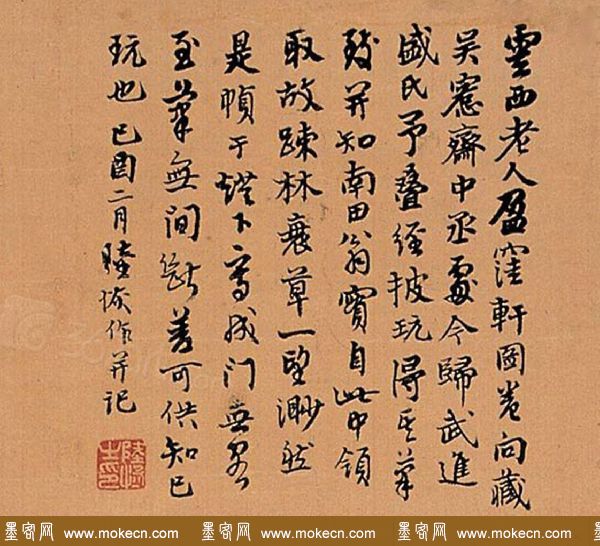 雲西老人盈窪軒圖卷向藏
吴窓齋中丞處今歸武進
盛氏予叠經披玩得其筆
致并知南田翁實自此中領
取故踈林衰草一望渺然
是幀于鐙下寫成門無客
至筆無間斷差可供知己
玩也 己酉二月陸恢作并記
陸恢
士印
墨客网 www.mokecn.com 墨客网 www.mokecn.com 墨客网 www.mokecn.com